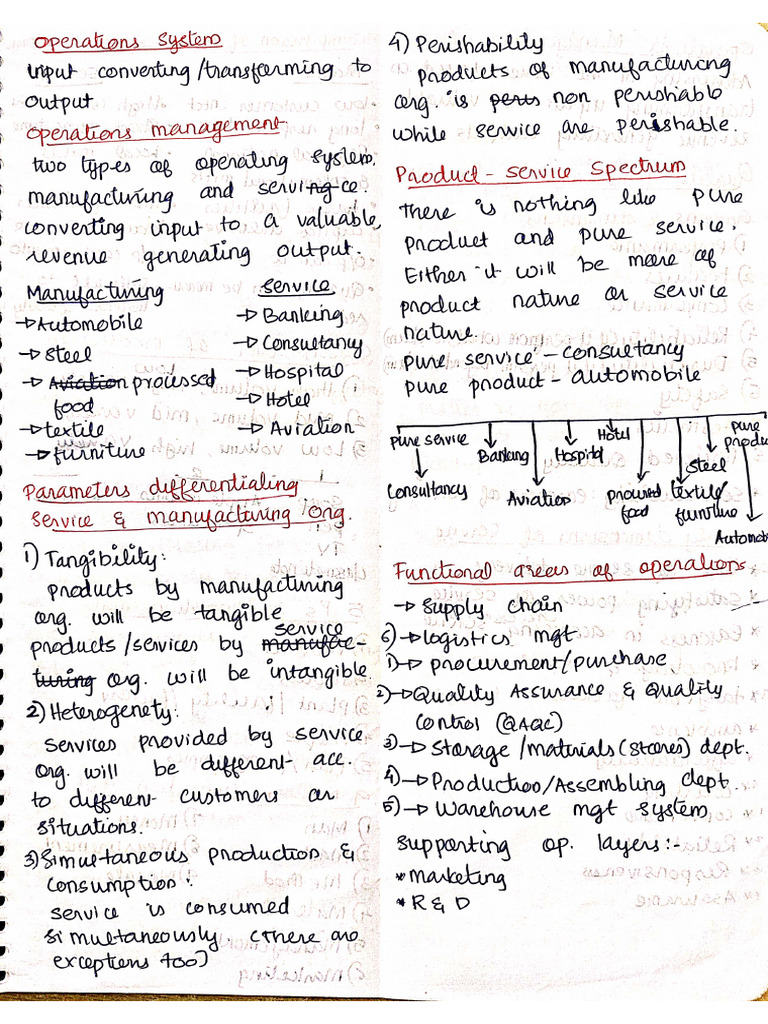 Operations System
Input converting/transforming to
output
Operations management
two types of operating system,
manufacturing and service
converting input to a valuable,
revenue generating output.
Manufacturing
→Automobile
→Steel
→ Aviation processed
food
→textile
→furniture
Service
→Banking
→Consultancy
→Hospital
→Hotel
→ Aviation
Parameters differentiating
service & manufacturing org.
1) Tangibility:
products by manufacturing
org. will be tangible
service
products/services by manufac-
turing org. will be intangible.
2) Heterogenety:
Services provided by service
org. will be different acc.
to different customers or
situations.
3) Simultaneous production &
consumption:
service is consumed
simultaneously (There are
exceptions too)
4) Perishability
products of manufacturing
org. is peris non perishable
while service are perishable.
Product - Service Spectrum
There is nothing like pure
product and pure service.
Either it will be more of
product nature or service
nature.
pure service - consultancy
pure product - automobile
pure service
Consultancy
Banking
Aviation
Hospital
Hotel
food
textile/
furniture
Steel
pure
produ
Automob
Functional areas of operations
→ Supply chain
6)→logistics mgt
1)→ procurement/purchase
2)→Quality Assurance & Quality
Control (QAQC)
3)→ Storage/materials(stores) dept.
4)→Production/Assembling dept.
5)→ Warehouse mgt system
Supporting op. layers:-
*marketing
* R & D